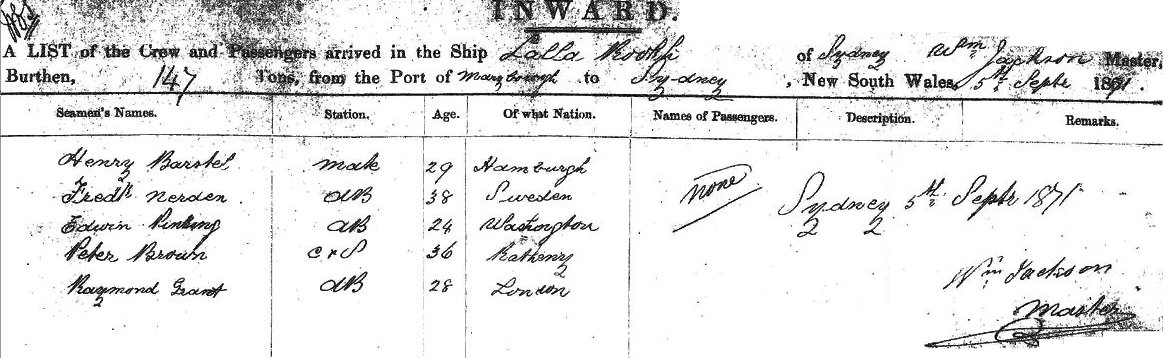 INWARD.
A LIST of the Crew and Passengers arrived in the Ship Lalla Rookh of Sydney Wm Jackson Master,
Burthen, 147 Tons, from the Port of Maryborough to Sydney, New South Wales, 5th Septr 1871.
Seamen's Names. Station. Age. Of what Nation. Names of Passengers. Description. Remarks.
Henry 29 Hamburgh
Fredk Nerden AB 38 Sweden none Sydney 5th Septr 1871
Edwin AB 24 Washington
Peter Brown C & S 36
Raymond Grant AB 28 London Wm Jackson
Master